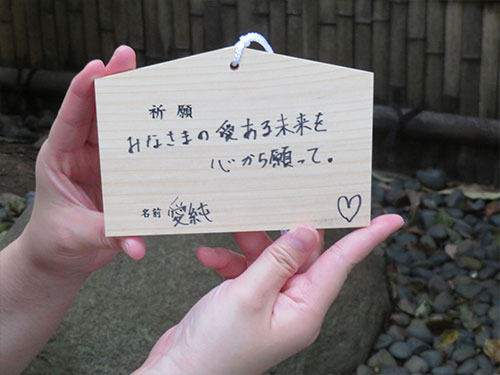 祈願
みなさまの愛ある未来を
心から願って。
名前 愛純